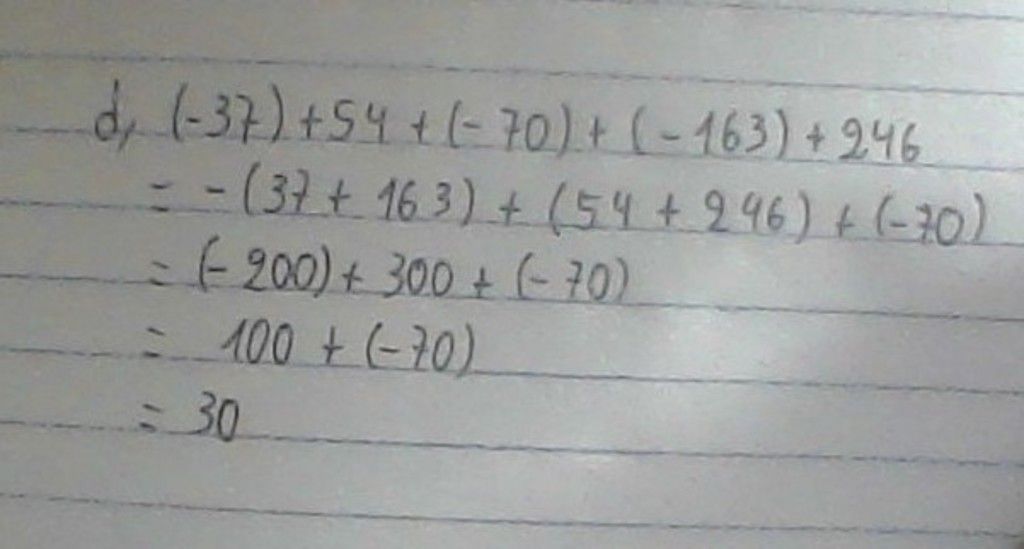 d, (-37) + 54 + (- 70) + (- 163) + 246
= - (37 + 163) + (54 + 246) + (-70)
= (- 200) + 300 + (- 70)
= 100 + (-70)
= 30